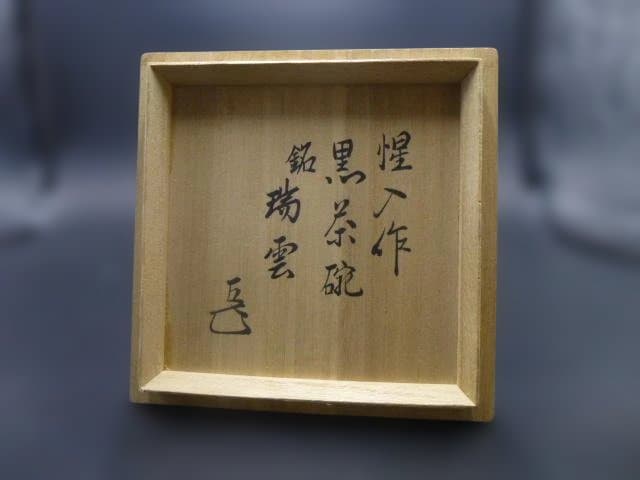 惺入作
黒茶碗
銘 瑞雲